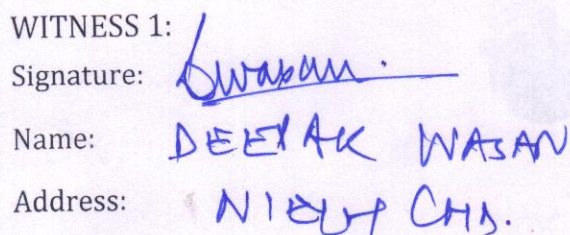 WITNESS 1:
Signature: Dwasan.
Name: DEEPAK WASAN
Address: NIELIT CHD.